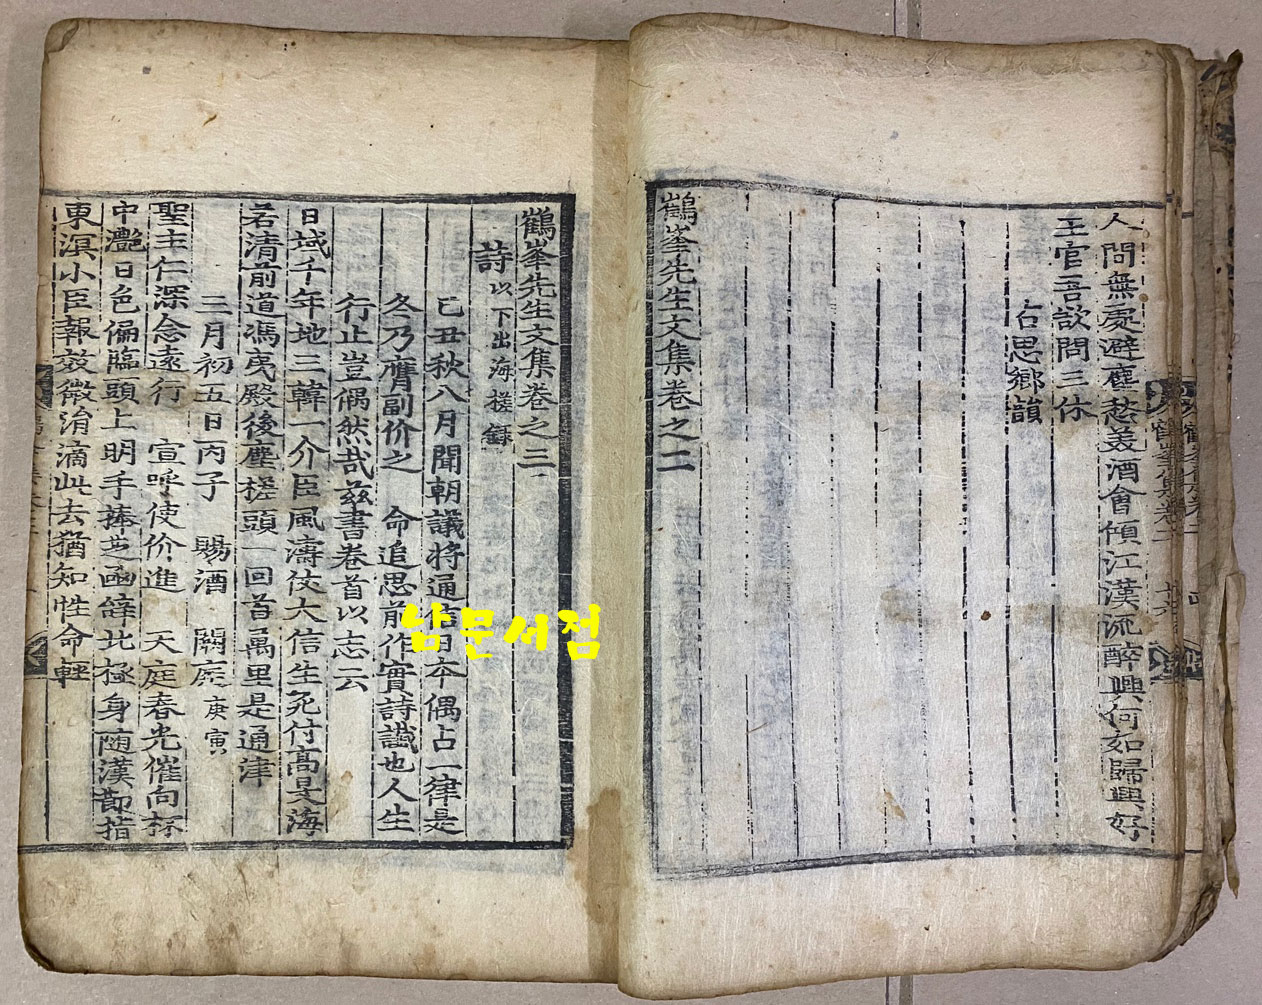 人間無處避塵愁美酒會傾江漢流醉興何如歸興好
王官吾欲問三休
右思鄕韻
鶴峯先生文集卷之二
鶴峯先生文集卷之三
詩 以下出海槎錄
己丑秋八月聞朝議將通信日本偶占一律是
冬乃膺副价之 命追思前作實詩讖也人生
行止豈偶然哉玆書卷首以志云
日域千年地三韓一介臣風濤仗大信生死付高旻海
若淸前道馮夷殿後塵槎頭一回首萬里是通津
三月初五日丙子 賜酒 闕庭 庚寅
聖主仁深念遠行 宣呼使价進 天庭春光催向杯
中灔日色偏臨頭上明手捧芝函辭北極身隨漢節指
東溟小臣報效微涓滴此去猶知性命輕
남문서점